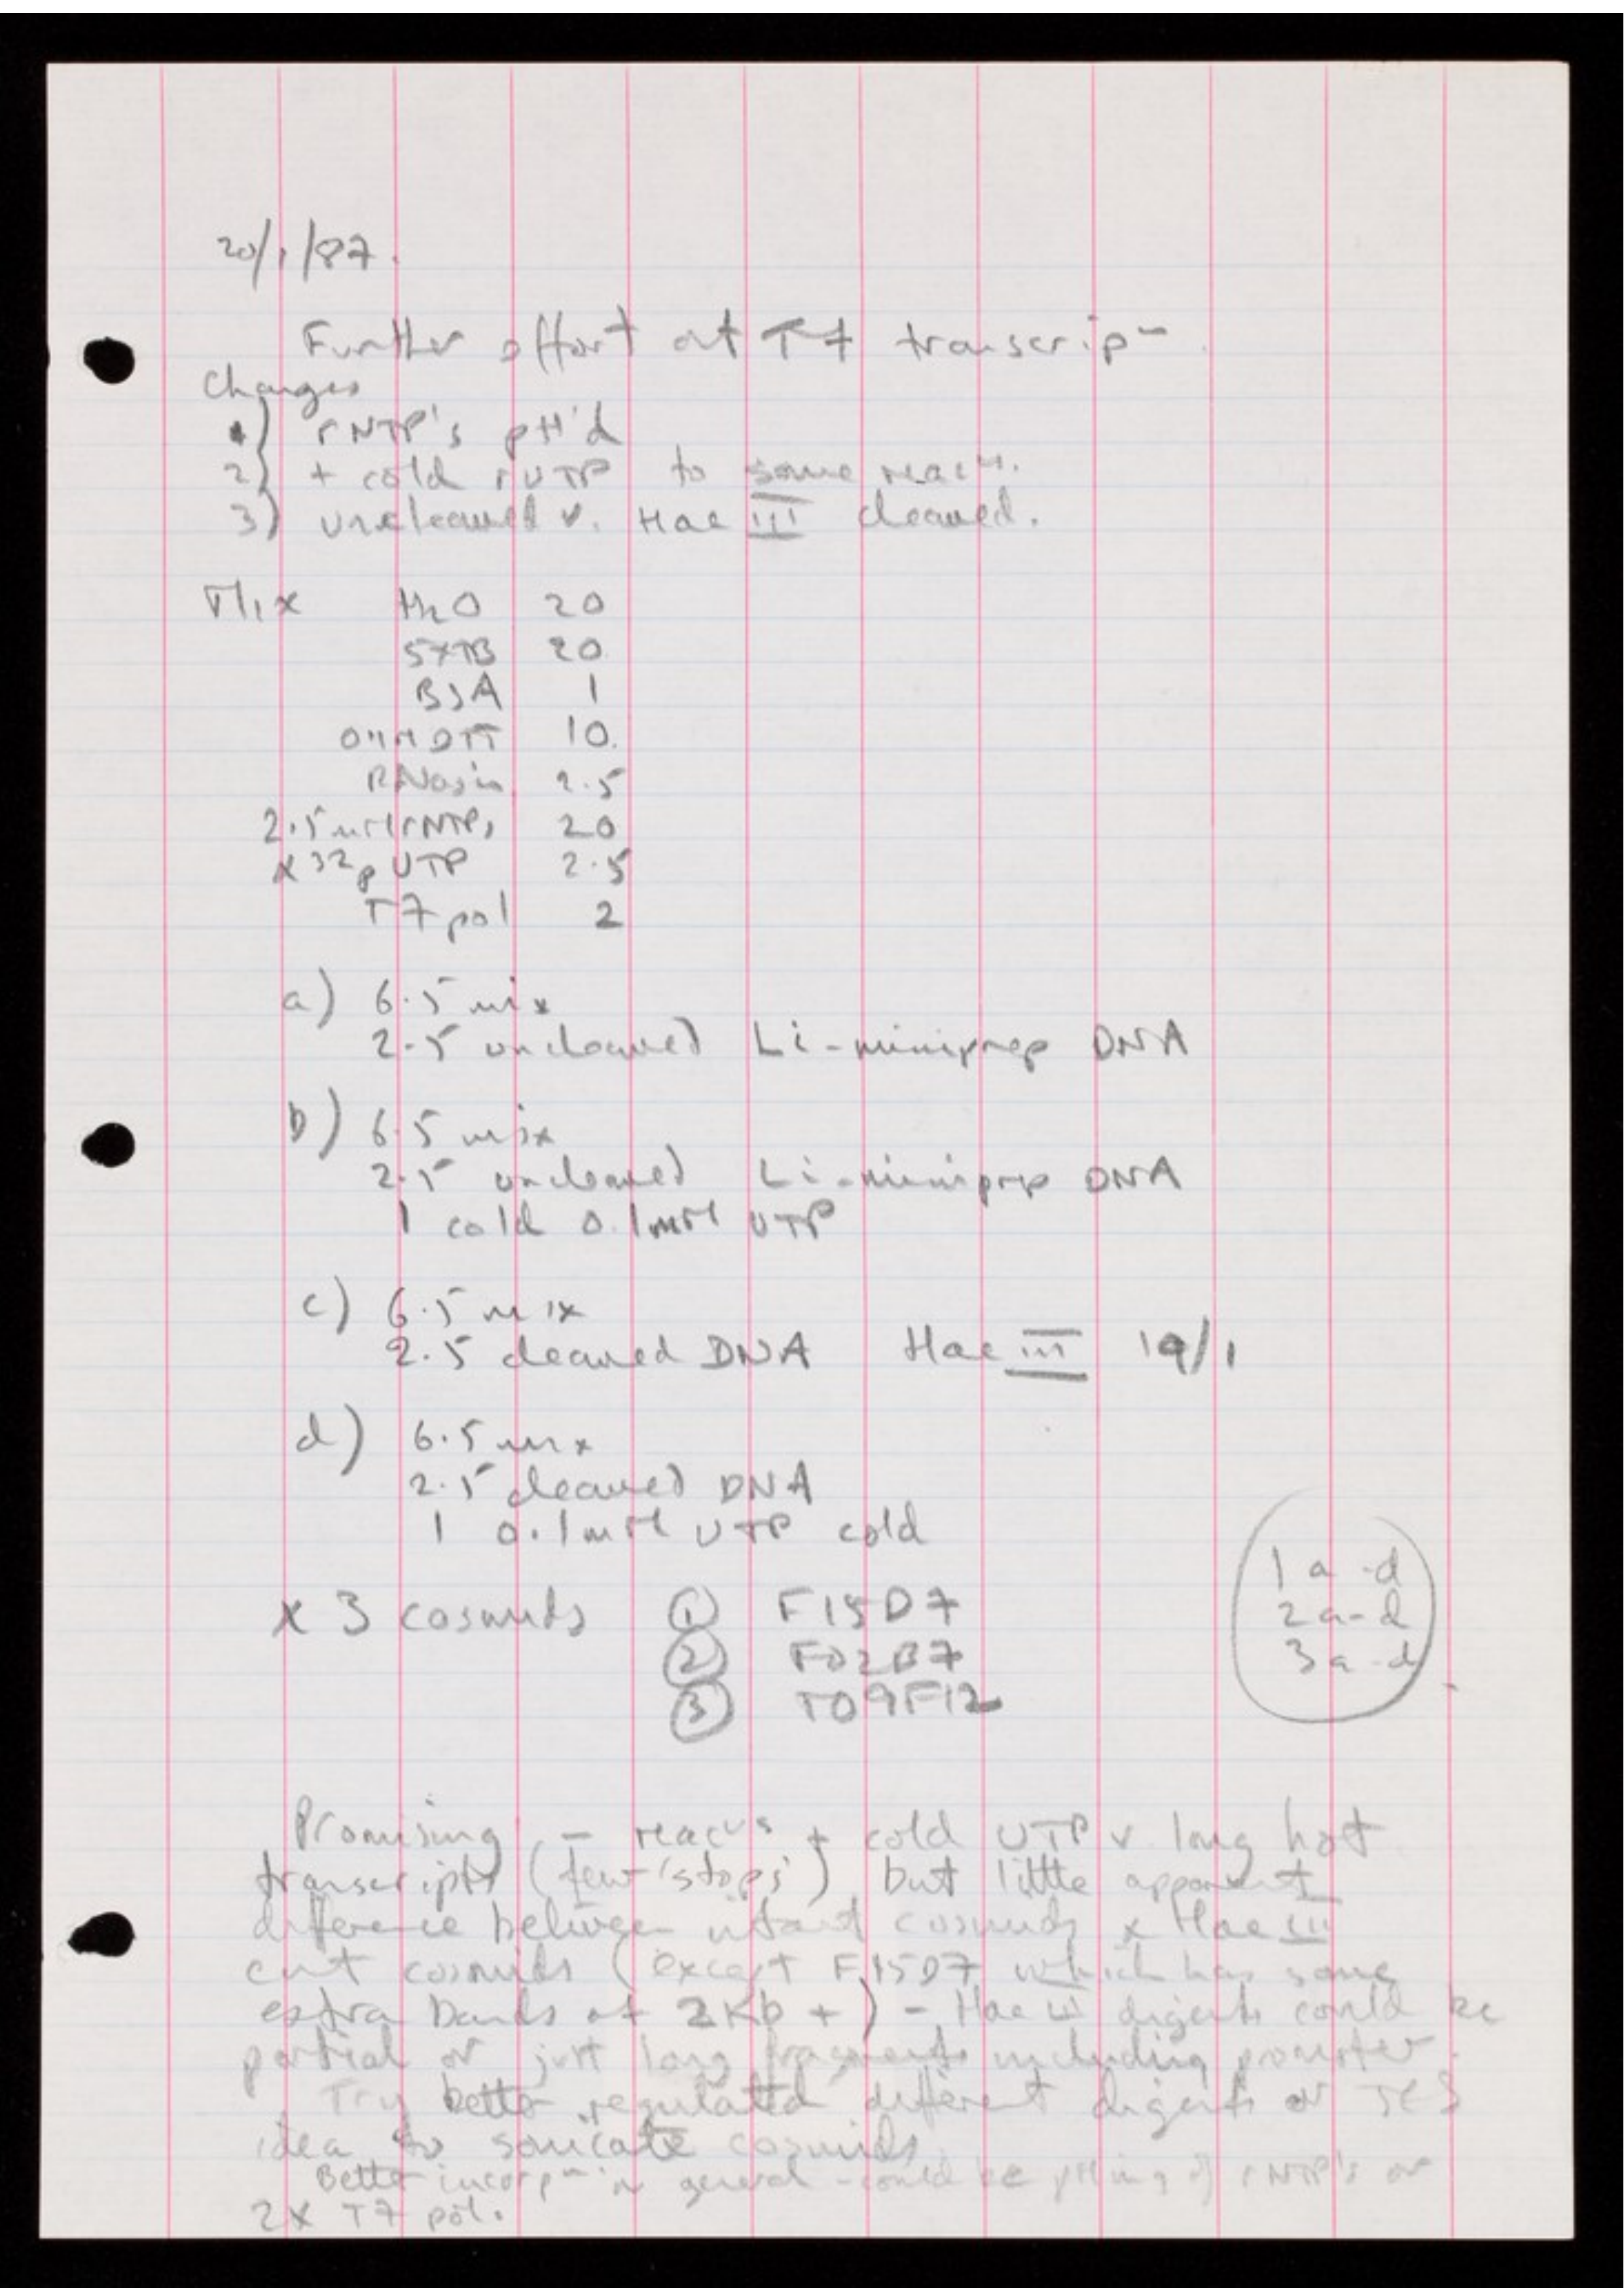 20/1/87.
Further effort at T7 transcripⁿ.
Changes
1) rNTP's pH'd
2) + cold rUTP to some reacⁿ.
3) uncleaved v. Hae III cleaved.
Mix H2O 20
5xTB 20
BSA 1
DTT 10.
RNasin 2.5
2.5mM rNTPs 20
α 32P UTP 2.5
T7 pol 2
a) 6.5 mix
2.5 uncleaved Li-miniprep DNA
b) 6.5 mix
2.5 uncleaved Li-miniprep DNA
1 cold 0.1mM UTP
c) 6.5 mix
2.5 cleaved DNA Hae III 19/1
d) 6.5 mix
2.5 cleaved DNA
1 0.1mM UTP cold
x 3 cosmids ① F15D7
② F02B7
③ T09F12
1 a-d
2 a-d
3 a-d
Promising - reacⁿs + cold UTP v long hot
transcripts (few 'stops') but little apparent
difference between intact cosmids & Hae III
cut cosmids (except F15D7 which has some
extra bands at 2Kb +) - Hae III digests could be
partial or just long fragments including promoter.
Try better regulated different digests or JES
idea to sonicate cosmids.
Better incorpⁿ in general - could be pHing of rNTP's or
2x T7 pol.